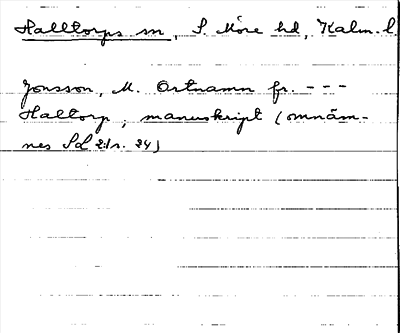 Halltorps sn, S. Möre hd, Kalm. l.
Jonsson, M. Ortnamn fr. - - -
Haltorp, manuskript (omnäm-
nes SoL 21 s. 24)